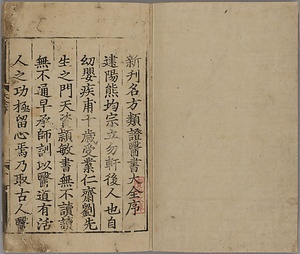 新刊名方類證醫書大全序
建陽熊均宗立勿軒後人也自
幼嬰疾甫十歲受業仁齋劉先
生之門天資穎敏書無不讀讀
無不通早承師訓以醫道有活
人之功極留心焉乃取古人醫